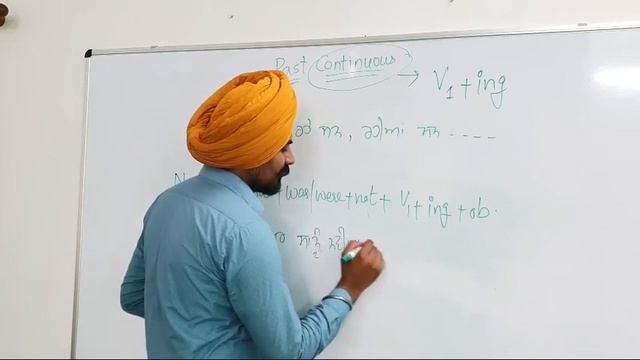 Past Continuous → V1 + ing
ਰਹੇ ਸਨ, ਰਹੀਆਂ ਸਨ ----
N + was/were + not + V1 + ing + ob.
ਸਾਨੂੰ ਨਹੀਂ